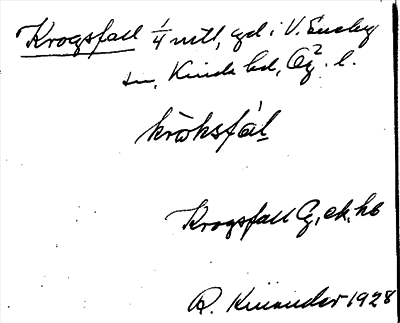 Krogsfall 1/4 mtl, gd i V. Eneby
sn, Kinda hd, Ög. l.
kròksfál
Krogsfall G, ek. kb
R. Kinander 1928